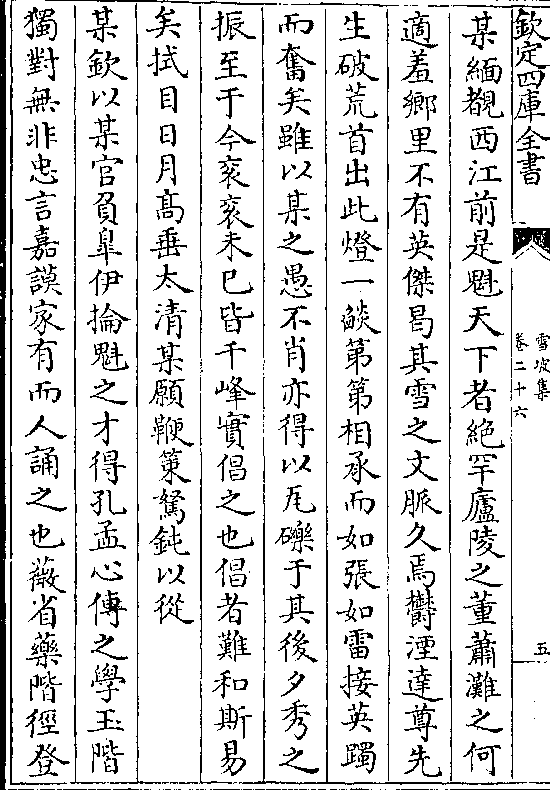 欽定四庫全書
雪坡集
卷二十六
五
某緬覩西江前是魁天下者絶罕廬陵之董蕭灘之何
適羞鄉里不有英傑曷其雪之文脈久焉欝湮達尊先
生破荒首出此燈一燄第第相承而如張如雷接英躅
而奮矣雖以某之愚不肖亦得以瓦礫于其後夕秀之
振至于今衮衮未已皆千峰實倡之也倡者難和斯易
矣拭目日月髙垂太清某願鞭策駑鈍以從
某欽以某官負臯伊掄魁之才得孔孟心傳之學玉階
獨對無非忠言嘉謨家有而人誦之也薇省藥階徑登